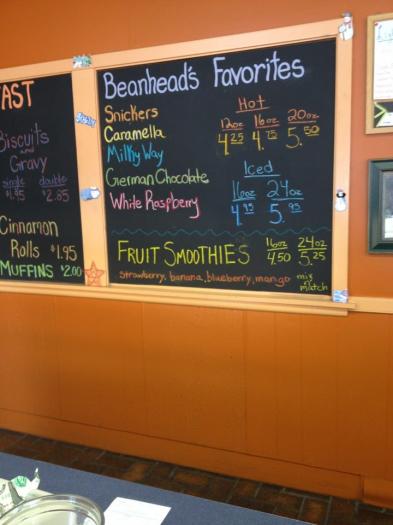 AST
Biscuits
and
Gravy
single double
$1.95 $2.85
Cinnamon
Rolls $1.95
MUFFINS $2.00
Beanhead's Favorites
Snickers
Caramella
Milky Way
German Chocolate
White Raspberry
Hot
12oz 16oz 20oz
4.25 4.75 5.50
Iced
16oz 24oz
4.95 5.95
FRUIT SMOOTHIES 16oz 24oz
4.50 5.25
strawberry, banana, blueberry, mango mix
match